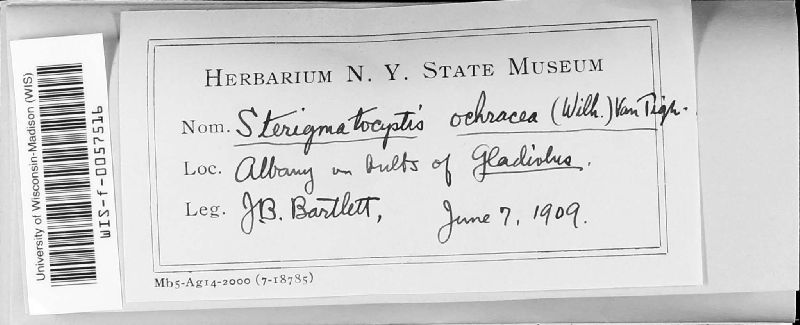 University of Wisconsin-Madison (WIS)
WIS-f-0057516
HERBARIUM N. Y. STATE MUSEUM
Nom. Sterigmatocyptis ochracea (Wilh.) Van Tigh.
Loc. Albany on bulbs of Gladiolus.
Leg. J.B. Bartlett, June 7, 1909.
Mb5-Ag14-2000 (7-18785)